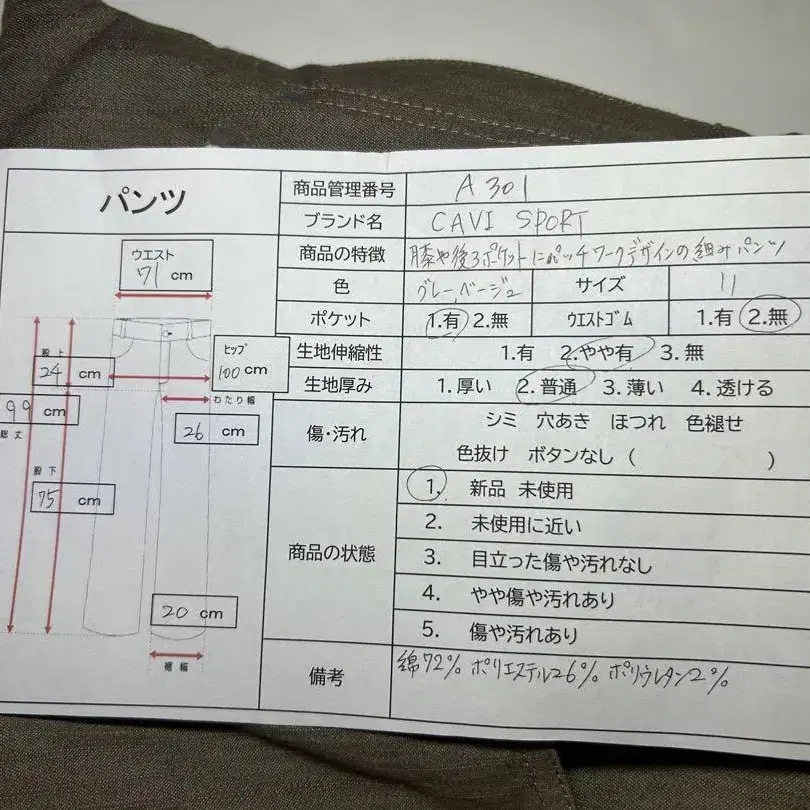 パンツ
商品管理番号 A301
ブランド名 CAVI SPORT
商品の特徴 膝や後ろポケットにパッチワークデザインの組みパンツ
色 グレーベージュ サイズ 11
ポケット 1.有 2.無 ウエストゴム 1.有 2.無
生地伸縮性 1.有 2.やや有 3.無
生地厚み 1.厚い 2.普通 3.薄い 4.透ける
傷・汚れ シミ 穴あき ほつれ 色褪せ
色抜け ボタンなし ( )
商品の状態
1. 新品 未使用
2. 未使用に近い
3. 目立った傷や汚れなし
4. やや傷や汚れあり
5. 傷や汚れあり
備考 綿72% ポリエステル26% ポリウレタン2%
ウエスト
71 cm
ヒップ
100 cm
股上
24 cm
わたり幅
26 cm
99 cm
総丈
股下
75 cm
20 cm
裾幅